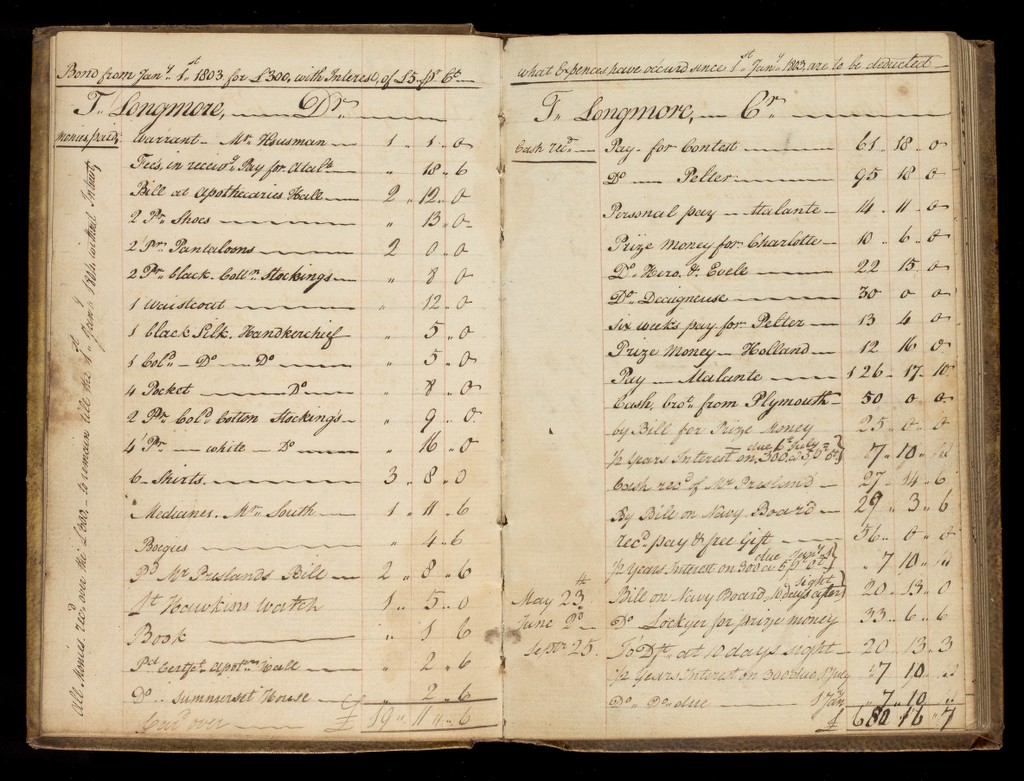 Bond from Jany. 1st 1803 for £300, with Interest, of £5 pr. Ct.
T. Longmore, Dr.
Monies paid,
Warrant - Mr. Housman 1 " 1 " 0
Fees, in receivg. Pay for Atalte. " 18 " 6
Bill at Apothecaries Hall 2 " 12 " 0
2 Pr. Shoes " 13 " 0
2 Pr. Pantaloons 2 0 " 0
2 Pr. black Cottn. Stockings " 8 " 0
1 Waistcoat " 12 " 0
1 black Silk Handkerchief " 5 " 0
1 Cold. - Do - Do " 5 " 0
4 Pocket Do " 8 " 0
2 Pr. Cold. Cotton Stockings " 9 " 0
4 Pr. - white - Do " 16 " 0
6 Shirts 3 " 8 " 0
Medicines. Mr. South 1 " 11 " 6
Bougies " 4 " 6
Pd. Mr. Preslands Bill 2 " 8 " 6
Hawkins Watch 1 " 5 " 0
Book " 1 " 6
Pd. Certft. Apoth. Hall " 2 " 6
Do. Summurset House " 2 " 6
Card. over £ 19 " 11 " 6
All Monies recd. over the £300. to remain till the 1st Jany. 1804 without Intrest
what Expences have occurd since 1st Jany. 1803 are to be deducted
T. Longmore, Cr.
Cash recd.
Pay - for Contest 61 " 18 " 0
Do Pelter 95 18 0
Personal pay - Atalante 14 " 11 " 0
Prize Money for Charlotte 10 " 6 " 0
Do. Hero. & Evele 22 15 " 0
Do. Decagneuse 30 0 0
Six weeks pay for Pelter 13 4 0
Prize Money - Holland 12 16 0
Pay - Atalante 126 " 17 " 10
Cash, brot. from Plymouth 50 0 0
by Bill for Prize Money 25 " 0 " 0
½ Years Interest on 300 a 5 pr. Ct. due 1st July 7 " 10 "
Cash recd. of Mr. Presland 27 " 14 " 6
By Bill on Navy Board 29 " 3 " 6
recd. pay & free Gift 56 " 0 " 0
½ Years Interest on 300 a 5 pr. Ct. due Jany. 1 " 7 10 "
May 23th Bill on Navy Board, 10 days after sight 20 " 13 " 0
June 2d. Do Lockyer for prize money 33 " 6 " 6
Septr. 25. To Dft. at 10 days sight 20 13 " 3
½ Years Interest on 300 due, 1 July 7 10
Do. Do. due 1 Jany. " 7 " 10
£ 680 16 " 7